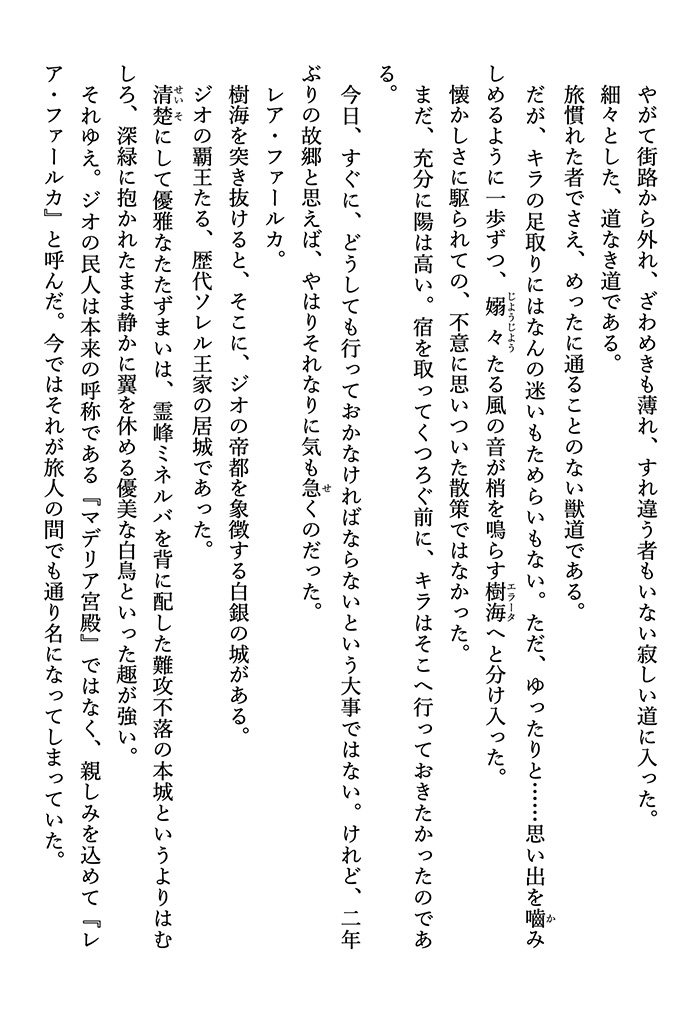 やがて街路から外れ、ざわめきも薄れ、すれ違う者もいない寂しい道に入った。
細々とした、道なき道である。
旅慣れた者でさえ、めったに通ることのない獣道である。
だが、キラの足取りにはなんの迷いもためらいもない。ただ、ゆったりと……思い出を嚙み
しめるように一歩ずつ、嫋々たる風の音が梢を鳴らす樹海へと分け入った。
懐かしさに駆られての、不意に思いついた散策ではなかった。
まだ、充分に陽は高い。宿を取ってくつろぐ前に、キラはそこへ行っておきたかったのであ
る。
今日、すぐに、どうしても行っておかなければならないという大事ではない。けれど、二年
ぶりの故郷と思えば、やはりそれなりに気も急くのだった。
レア・ファールカ。
樹海を突き抜けると、そこに、ジオの帝都を象徴する白銀の城がある。
ジオの覇王たる、歴代ソレル王家の居城であった。
清楚にして優雅なたたずまいは、霊峰ミネルバを背に配した難攻不落の本城というよりはむ
しろ、深緑に抱かれたまま静かに翼を休める優美な白鳥といった趣が強い。
それゆえ。ジオの民人は本来の呼称である『マデリア宮殿』ではなく、親しみを込めて『レ
ア・ファールカ』と呼んだ。今ではそれが旅人の間でも通り名になってしまっていた。